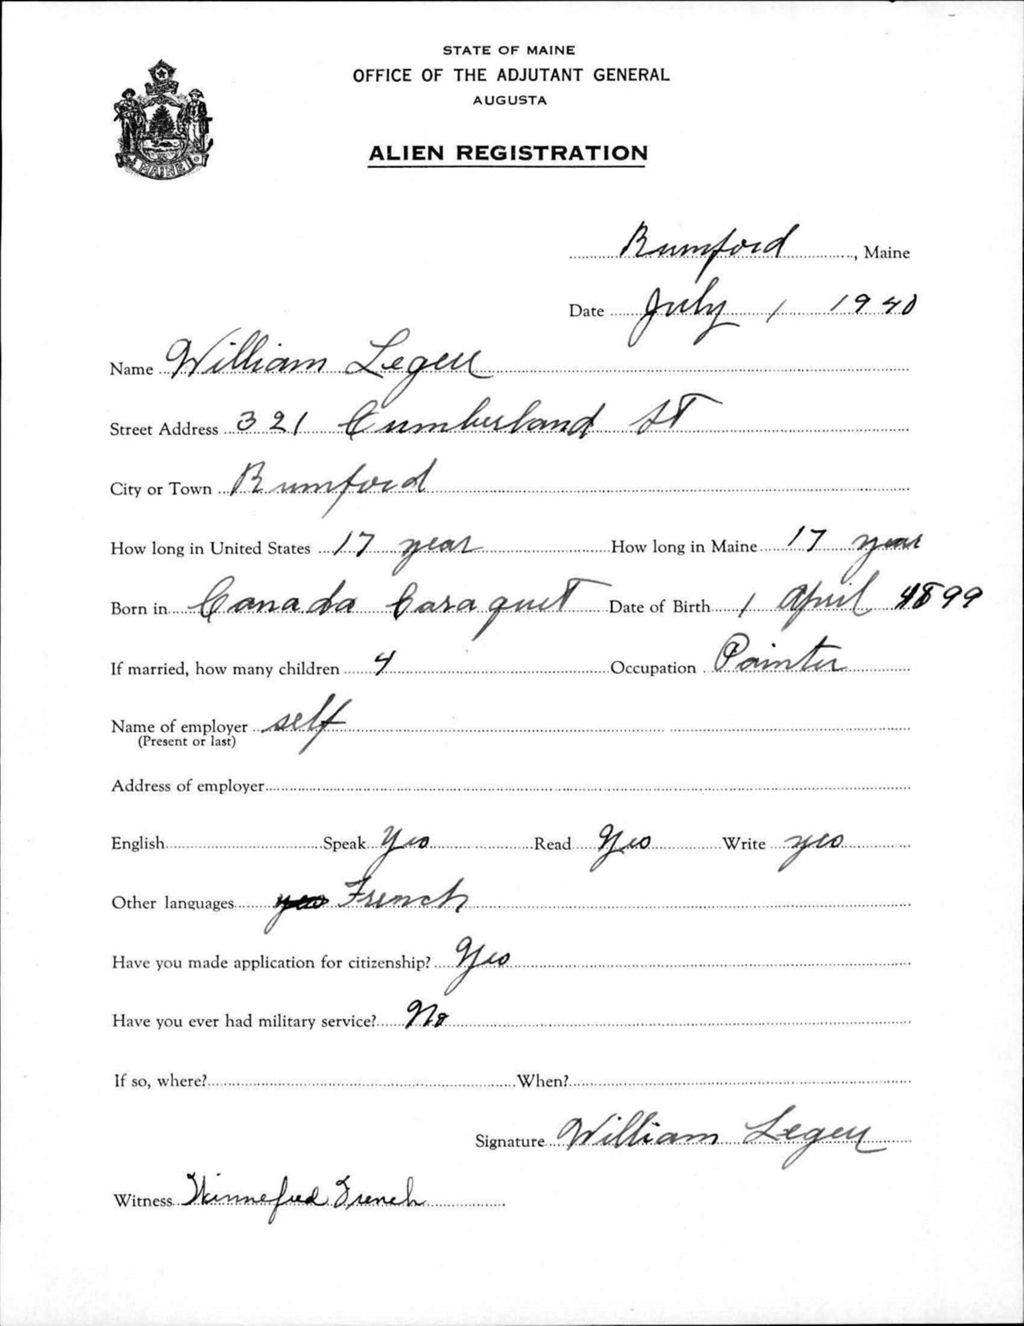 STATE OF MAINE
OFFICE OF THE ADJUTANT GENERAL
AUGUSTA
ALIEN REGISTRATION
MAINE
Rumford, Maine
Date July 1 1940
Name William Leger
Street Address 321 Cumberland ST
City or Town Rumford
How long in United States 17 year How long in Maine 17 year
Born in Canada Caraquet Date of Birth 1 April 1899
If married, how many children 4 Occupation Painter
Name of employer self
(Present or last)
Address of employer
English Speak Yes Read Yes Write yes
Other languages yes French
Have you made application for citizenship? Yes
Have you ever had military service? No
If so, where? When?
Signature William Leger
Witness Winnefred French